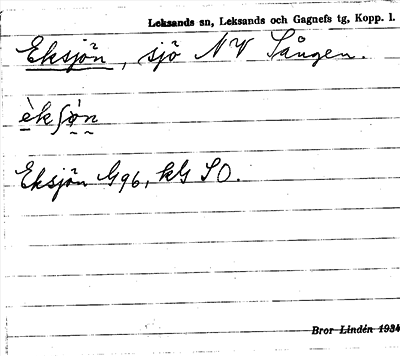 Leksands sn, Leksands och Gagnefs tg, Kopp. l.
Eksjön, sjö NV Sången.
èkʃòn
Eksjön G96, kG SO.
Bror Lindén 1934